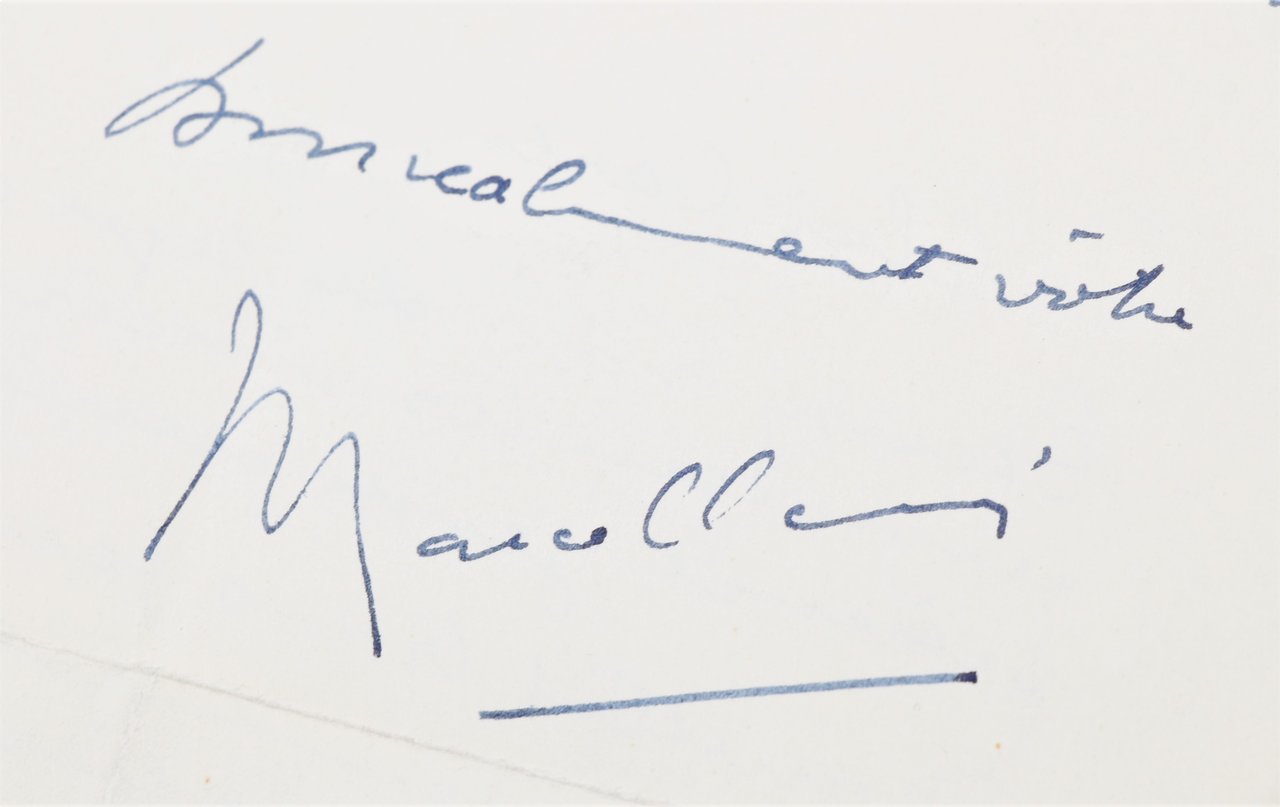 Amicalement vôtre
Marcel Carné